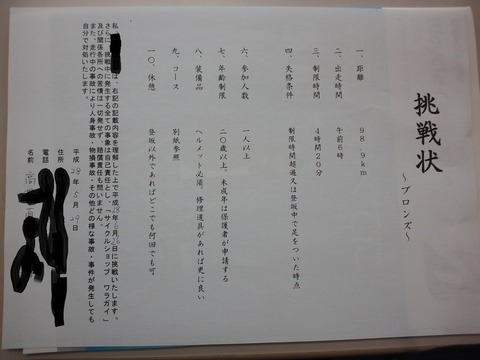 挑戦状
～ブロンズ～
一、距離 98.9km
二、出走時間 午前6時
三、制限時間 4時間20分
四、失格条件 制限時間超過又は登坂中で足をついた時点
六、参加人数 一人以上
七、年齢制限 二〇歳以上、未成年は保護者が申請する
八、装備品 ヘルメット必須、修理道具があれば更に良い
九、コース 別紙参照
一〇、休憩 登坂以外であればどこでも何回でも可
私、は、右記の記載内容を理解した上で平成28年6月26日に挑戦いたします。
さらに、挑戦中に発生する全ての事象は自己責任とし、「サイクルショップ ワラガイ」
及び関係各所への苦情は一切発せず、賠償責任も問いません。
また、走行中の事故により人身事故・物損事故・その他どの様な事故・事件が発生しても
自分で対処いたします。
平成28年5月29日
住所
電話
名前 高